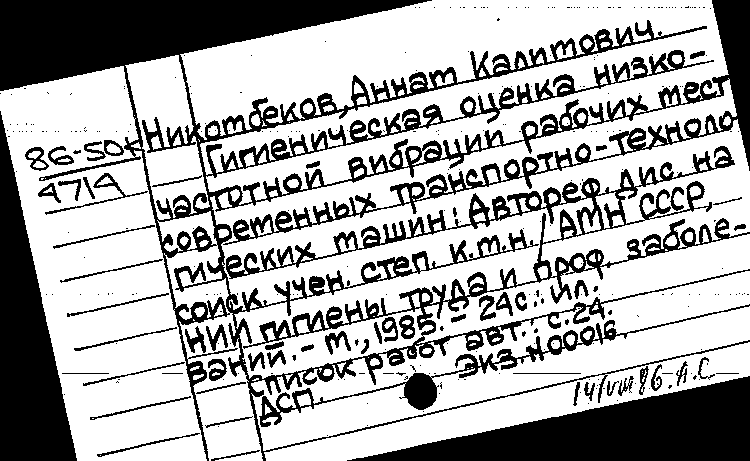 Никомбеков, Аннат Калитович.
86-50к
471А
Гигиеническая оценка низко-
частотной вибрации рабочих мест
современных транспортно-техноло
гических машин: Автореф. дис. на
соиск. учен. степ. к.т.н. / АМН СССР,
НИИ гигиены труда и проф. заболе-
ваний. - т., 1985. - 24с.: ил.
Список работ авт.: с.24.
ДСП. Экз. N 00016.
14/VIII 86. А.С.